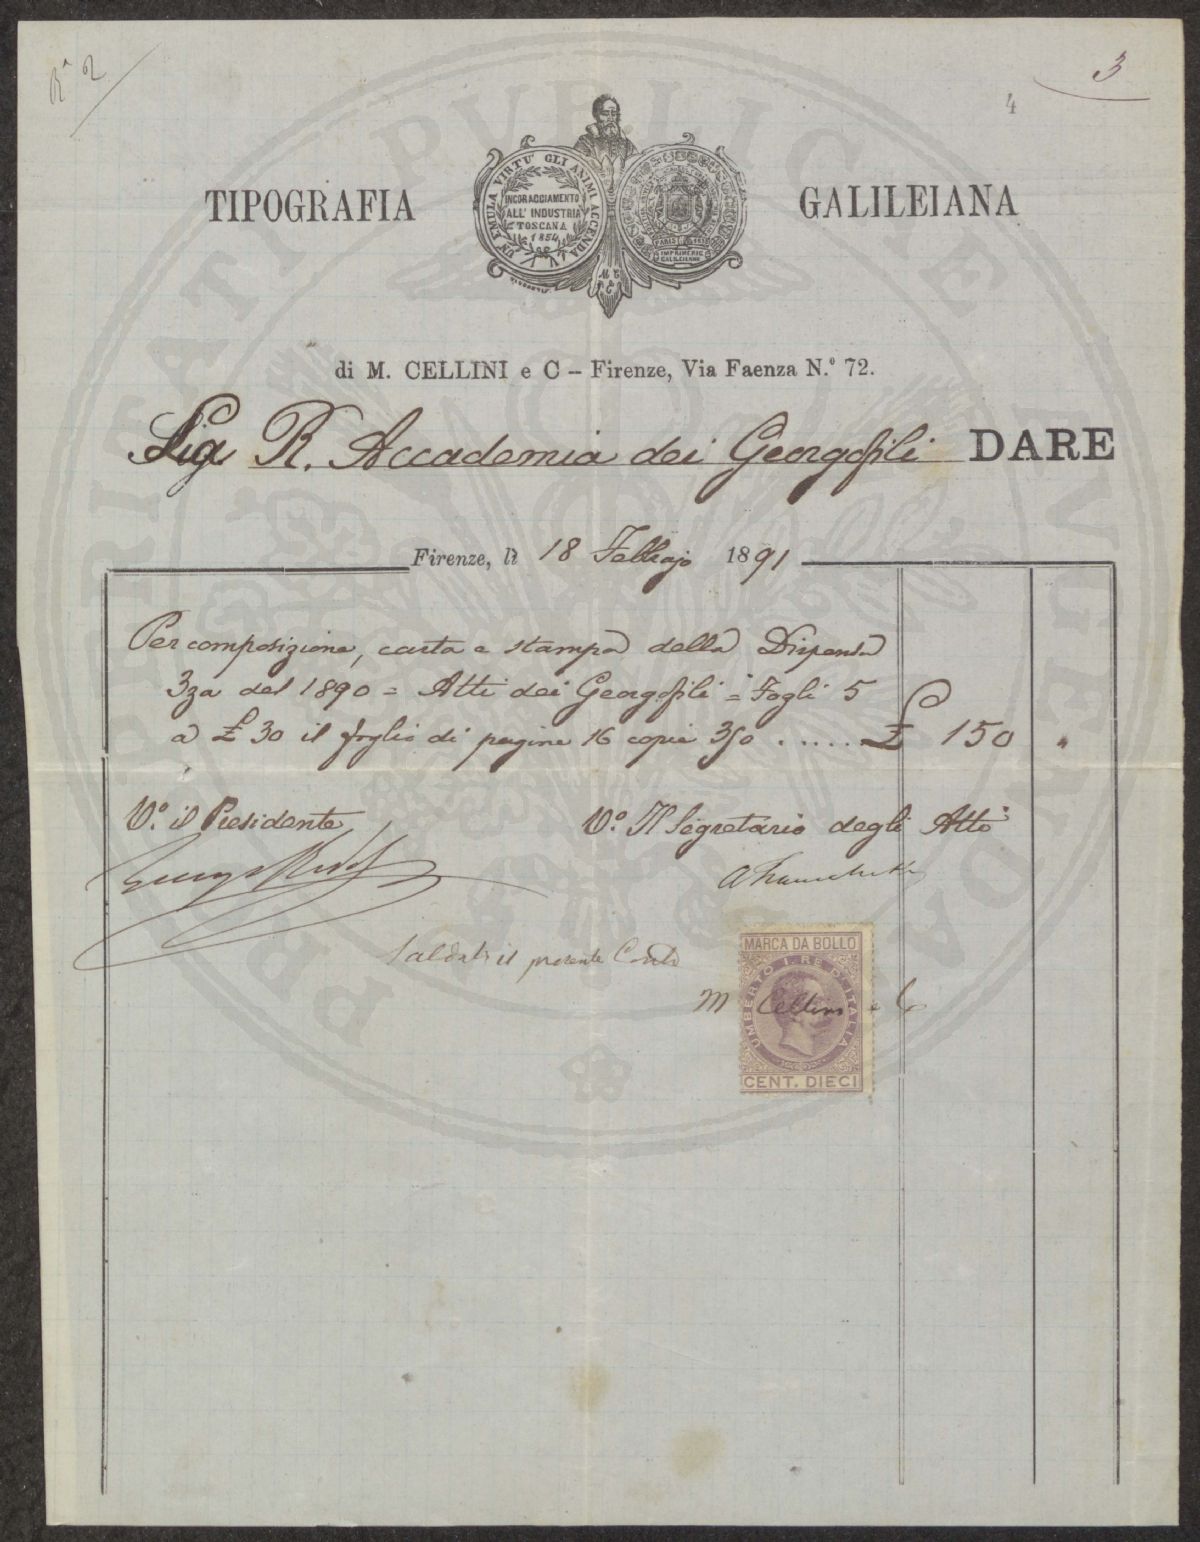 Ra 2
3
4
TIPOGRAFIA GALILEIANA
UN EMULA VIRTU' GLI ANIMI ACCENDA
INCORAGGIAMENTO
ALL' INDUSTRIA
TOSCANA
1854
IMPRIMERIE
GALILEIANE
di M. CELLINI e C – Firenze, Via Faenza N.º 72.
Sig. R. Accademia dei Georgofili DARE
Firenze, lì 18 Febbrajo 1891
Per composizione, carta e stampa della Dispensa
3za del 1890 = Atti dei Georgofili = Fogli 5
a £ 30 il foglio di pagine 16 copie 350 ...... £ 150
Vº. il Presidente Vº. Il Segretario degli Atti
Saldato il presente Conto
MARCA DA BOLLO
UMBERTO I. RE D'ITALIA
M Cellini e C
CENT. DIECI